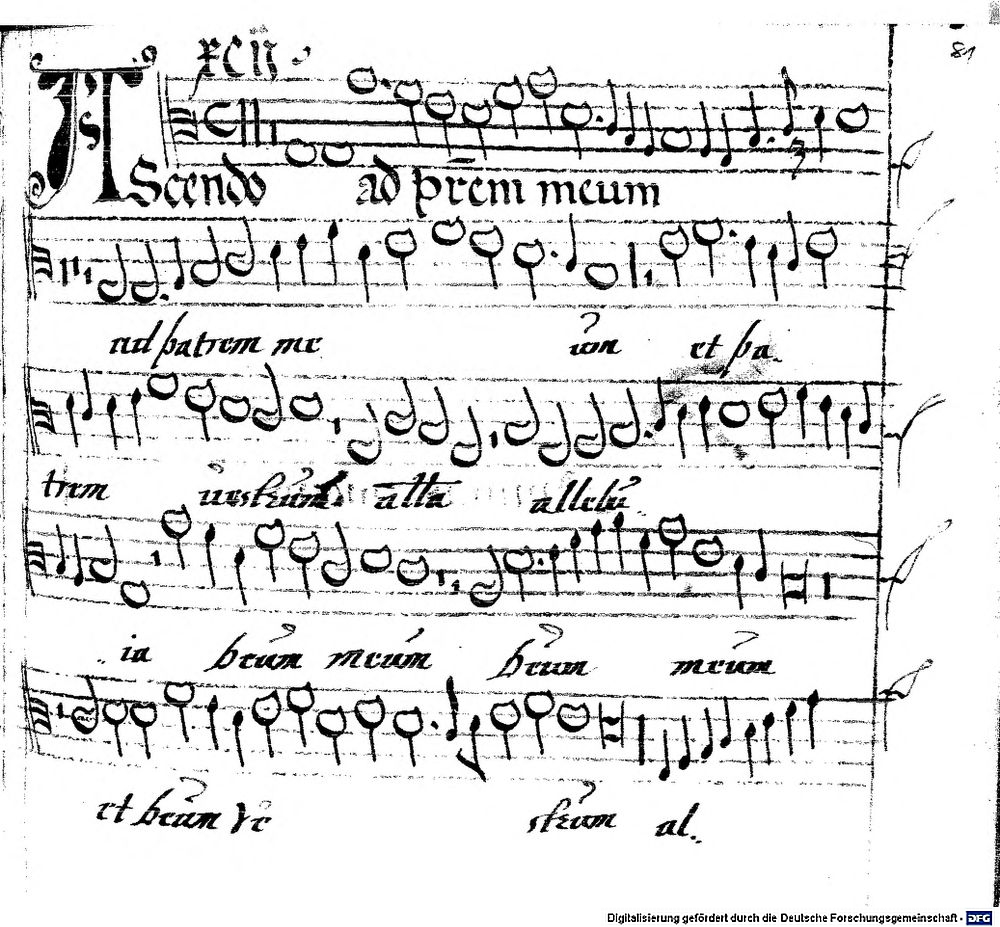 xcii
81
AScendo ad prem meum
ad patrem me um et pa
trem uestrum alla allelu
ia deum meum deum meum
et deum ve strum al
Digitalisierung gefördert durch die Deutsche Forschungsgemeinschaft - DFG